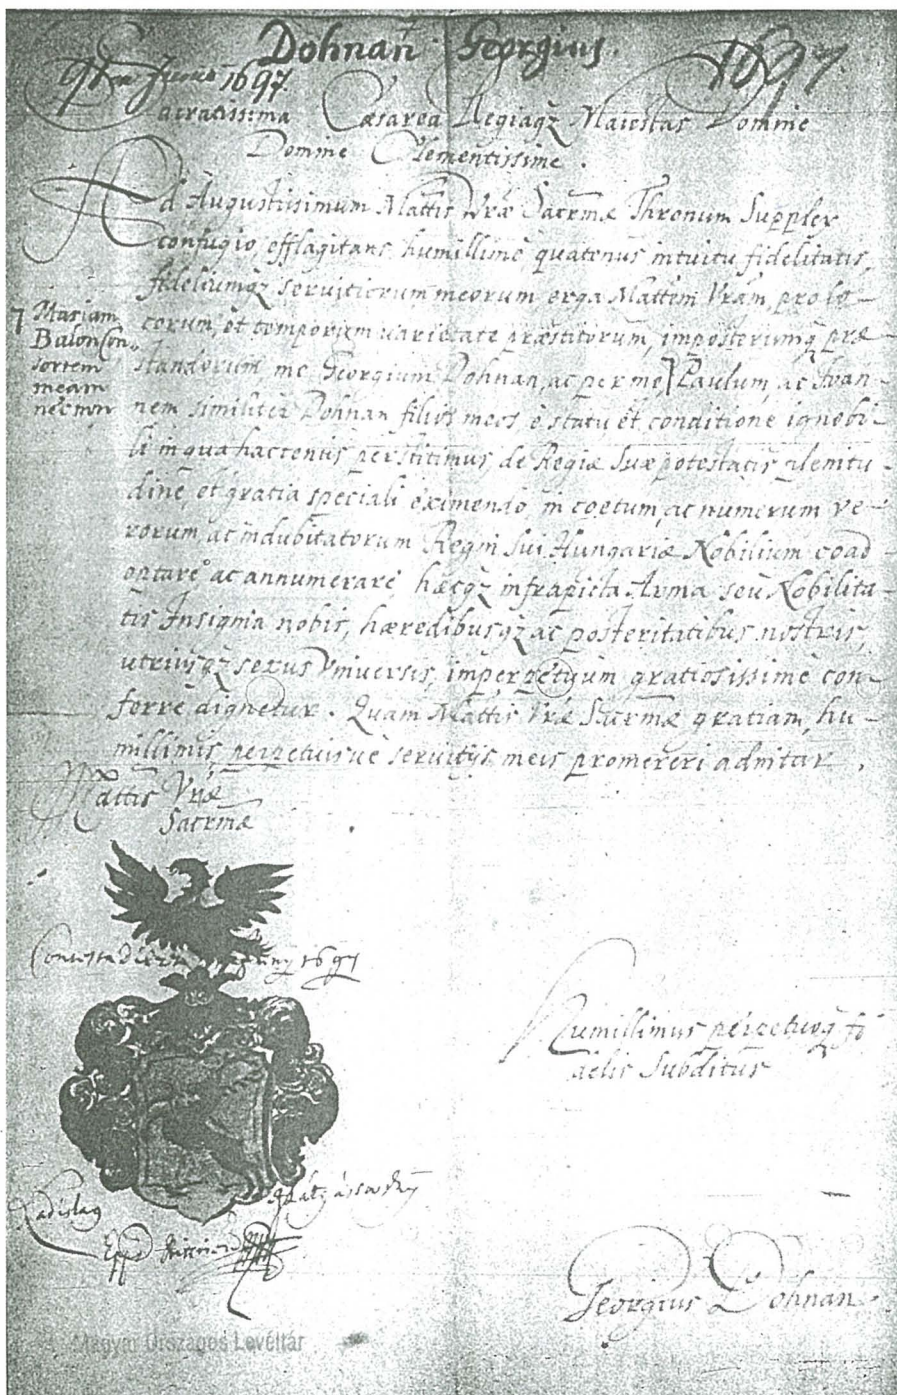 Dohnan Georgius.
Juny 1697. 1697.
Sacratissima Cæsarea Regiaqz Maiestas Domine
Domine Clementissime.
Ad Augustissimum Mattis Vræ Sacrmæ Thronum Supplex
confugio, efflagitans humillimè, quatenus intuitu fidelitatis,
fideliumqz servitiorum meorum erga Mattem Vram, pro lo-
corum, et temporum varietate præstitorum, imposterumqz præ
standorum, me Georgium Dohnan, ac per me, Paulum, ac Ivan-
Mariam
Balon Con
sortem
meam
necnon
nem similiter Dohnan filios meos, è statu et conditione ignobi-
li in qua hactenus perstitimus de Regiæ Suæ potestatis plenitu-
dine et gratia speciali eximendo in coetum, ac numerum ve-
rorum, ac indubitatorum Regni sui Hungariæ Nobilium coad
optare ac annumerare, hæcqz infrapicta Arma seu Nobilita-
tis Insignia nobis, hæredibusqz ac posteritatibus nostris,
utriusqz sexus Vniversis, imperpetuum gratiosissimè con-
ferre dignetur. Quam Mattis Vræ Sacrmæ gratiam, hu-
millimis, perpetuisve servitijs meis promereri adnitar.
Mattis Vræ
Sacrmæ
1697
Humillimus perpetuoqz fi
delis Subditus
Ladislaus Mattyásovszky
Eppus Nittriensis
Georgius Dohnan.
Magyar Országos Levéltár